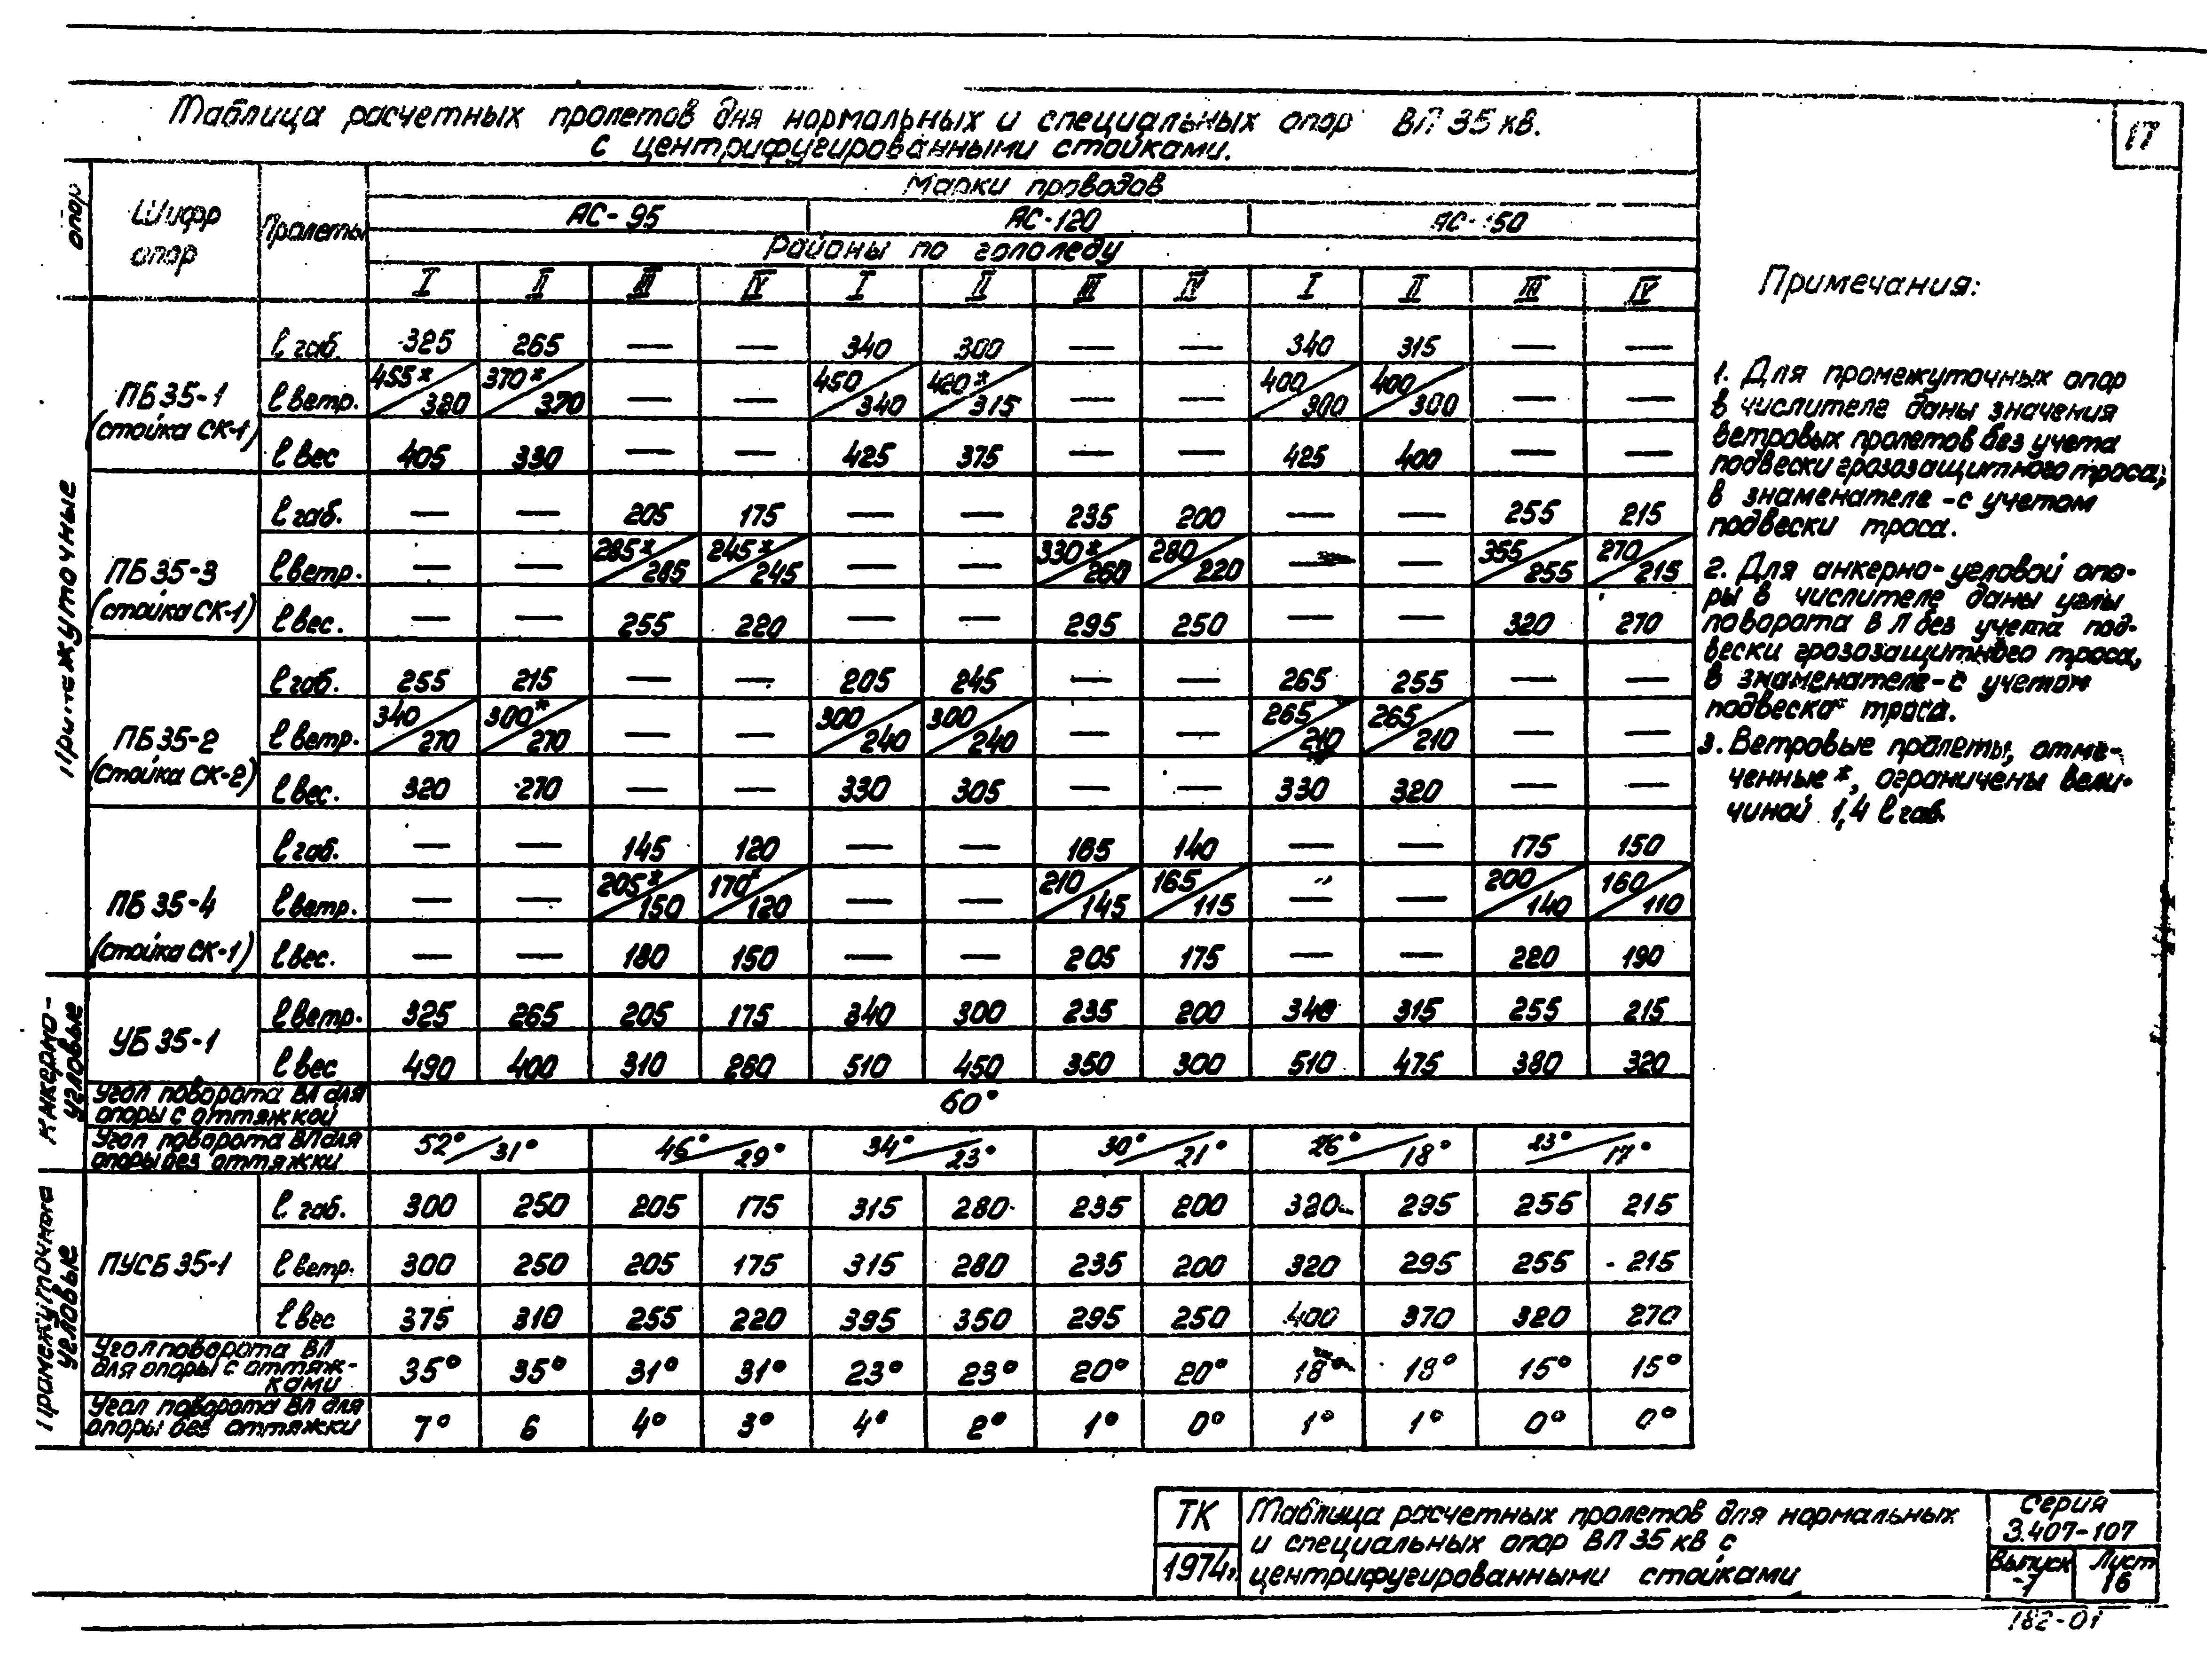 Таблица расчетных пролетов для нормальных и специальных опор ВЛ 35 кв.
с центрифугированными стойками.
17
опор
Шифр опор
Пролеты
Марки проводов
АС-95 АС-120 АС-150
Районы по гололеду
I II III IV I II III IV I II III IV
Промежуточные
ПБ 35-1
(стойка СК-1)
l габ. 325 265 — — 340 300 — — 340 315 — —
l ветр. 455*/380 370*/370 — — 450/340 420*/315 — — 400/300 400/300 — —
l вес 405 330 — — 425 375 — — 425 400 — —
ПБ 35-3
(стойка СК-1)
l габ. — — 205 175 — — 235 200 — — 255 215
l ветр. — — 285*/285 245*/245 — — 330*/260 280/220 — — 355/255 270/215
l вес. — — 255 220 — — 295 250 — — 320 270
ПБ 35-2
(стойка СК-2)
l габ. 255 215 — — 205 245 — — 265 255 — —
l ветр. 340/270 300*/270 — — 300/240 300/240 — — 265/210 265/210 — —
l вес. 320 270 — — 330 305 — — 330 320 — —
ПБ 35-4
(стойка СК-1)
l габ. — — 145 120 — — 165 140 — — 175 150
l ветр. — — 205*/150 170*/120 — — 210/145 165/115 — — 200/140 160/110
l вес. — — 180 150 — — 205 175 — — 220 190
Анкерно-
угловые
УБ 35-1
l ветр. 325 265 205 175 340 300 235 200 340 315 255 215
l вес 490 400 310 260 510 450 350 300 510 475 380 320
Угол поворота ВЛ для
опоры с оттяжкой
60°
Угол поворота ВЛ для
опоры без оттяжки
52°/31° 46°/29° 34°/23° 30°/21° 26°/18° 23°/17°
Промежуточные
угловые
ПУСБ 35-1
l габ. 300 250 205 175 315 280 235 200 320 295 255 215
l ветр. 300 250 205 175 315 280 235 200 320 295 255 215
l вес 375 310 255 220 395 350 295 250 400 370 320 270
Угол поворота ВЛ
для опоры с оттяж-
ками
35° 35° 31° 31° 23° 23° 20° 20° 18° 18° 15° 15°
Угол поворота ВЛ для
опоры без оттяжки
7° 6 4° 3° 4° 2° 1° 0° 1° 1° 0° 0°
Примечания:
1. Для промежуточных опор
в числителе даны значения
ветровых пролетов без учета
подвески грозозащитного троса;
в знаменателе - с учетом
подвески троса.
2. Для анкерно-угловой опо-
ры в числителе даны углы
поворота ВЛ без учета под-
вески грозозащитного троса,
в знаменателе - с учетом
подвеска троса.
3. Ветровые пролеты, отме-
ченные *, ограничены вели-
чиной 1,4 l габ.
ТК
1974г.
Таблица расчетных пролетов для нормальных
и специальных опор ВЛ 35 кв с
центрифугированными стойками
Серия
3.407-107
Выпуск
-1
Лист
16
182-01